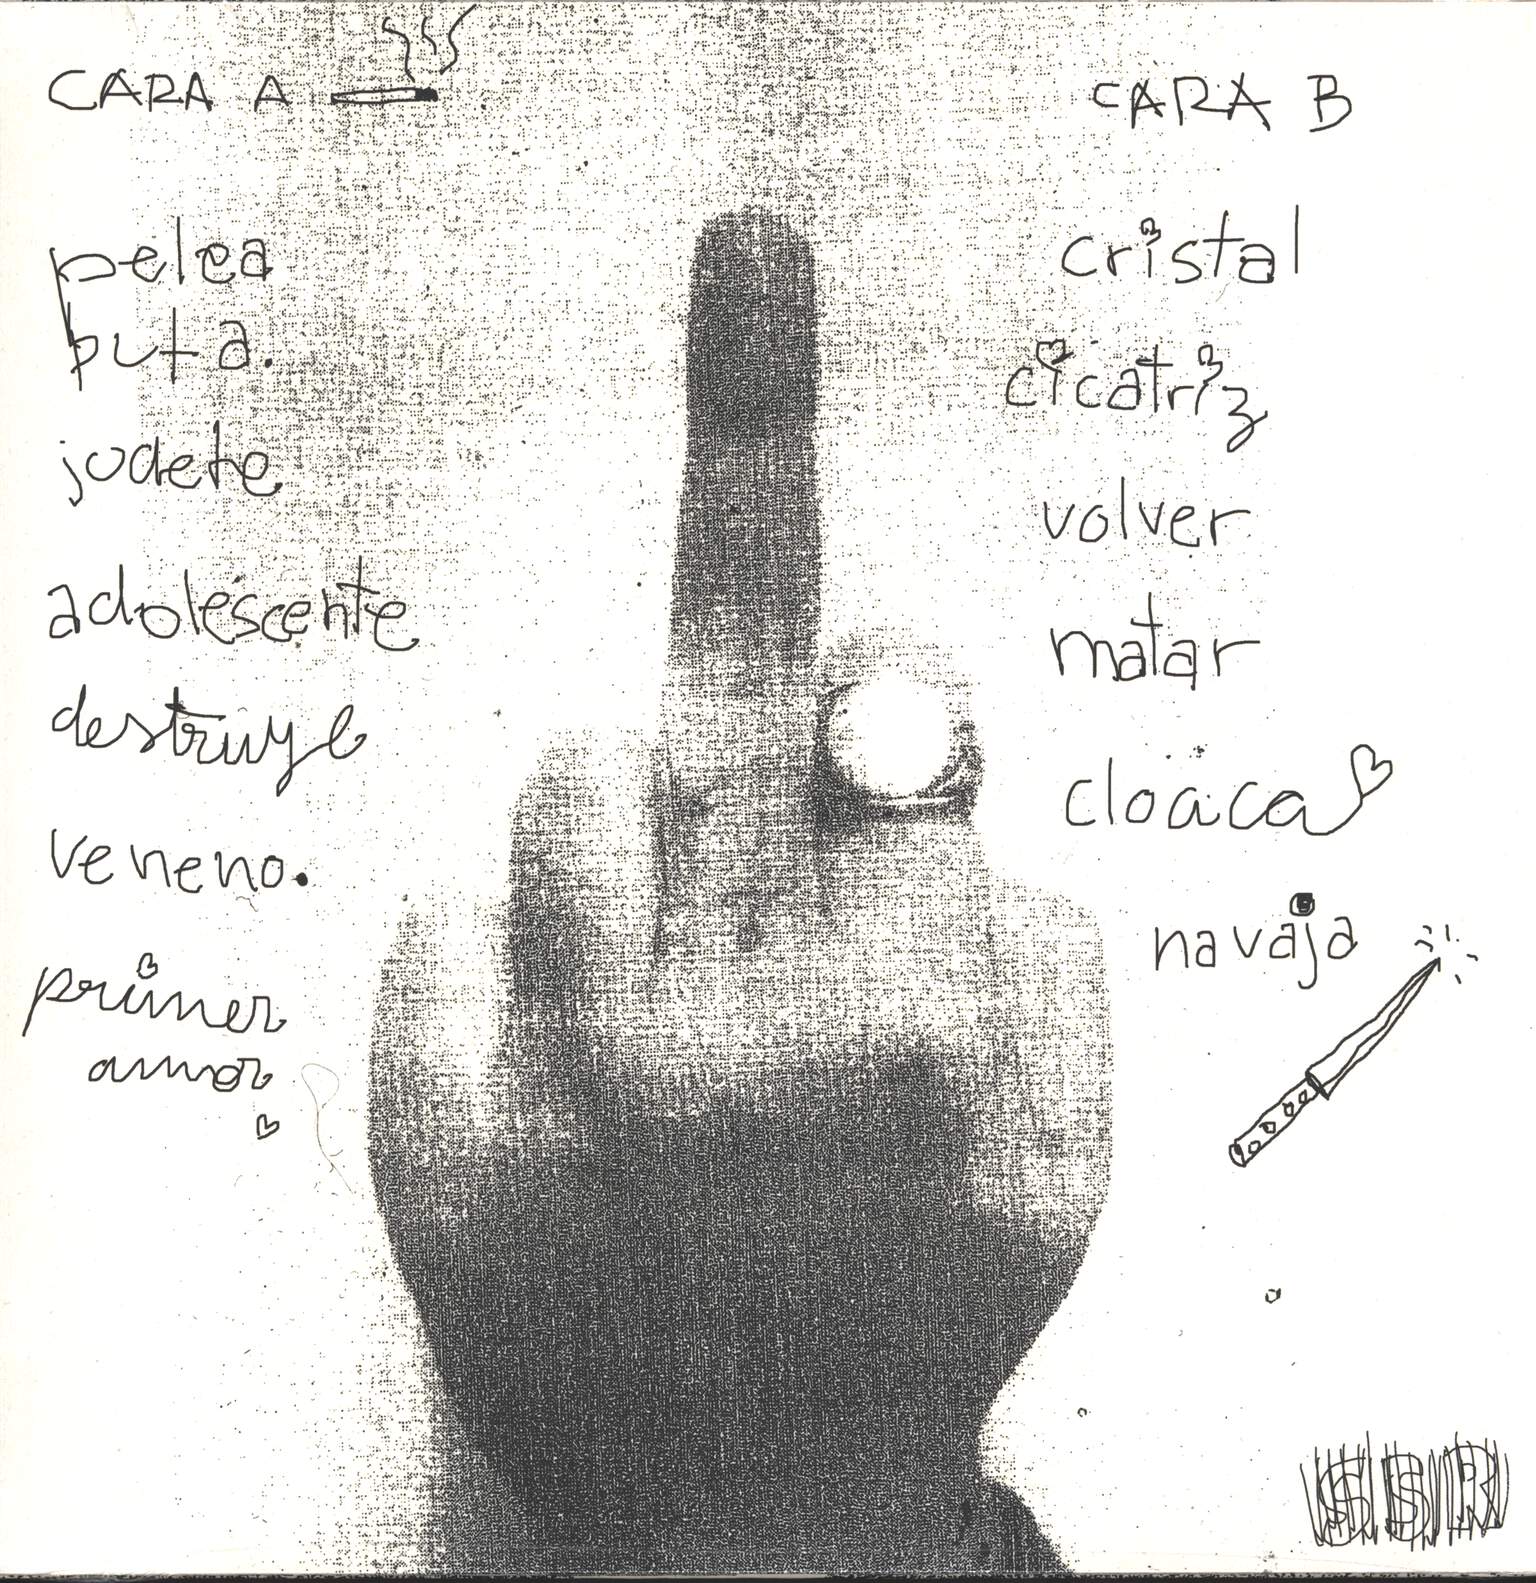 CARA A
pelea
puta.
jodete
adolescente
destruye
veneno.
primer
amor
CARA B
cristal
cicatriz
volver
matar
cloaca
navaja